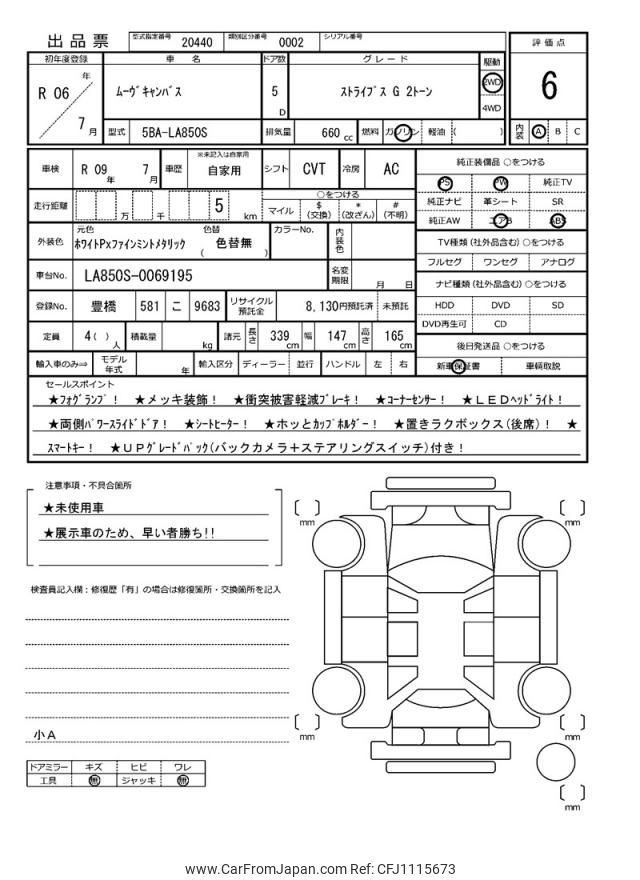 出品票 型式指定番号 20440 類別区分番号 0002 シリアル番号
評価点
6
内装 A B C
初年度登録 車名 ドア数 グレード 駆動
R 06年 7月 ﾑｰｳﾞｷｬﾝﾊﾞｽ 5 D ストライプス G 2トーン 2WD
4WD
型式 5BA-LA850S 排気量 660 cc 燃料 ガソリン 軽油 ( )
車検 R 09年 7月 車歴 ※未記入は自家用 自家用 シフト CVT 冷房 AC
走行距離 万 千 5 km ○をつける
マイル $(交換) *(改ざん) #(不明)
外装色 元色 色替 カラーNo. 内装色
ﾎﾜｲﾄPxﾌｧｲﾝﾐﾝﾄﾒﾀﾘｯｸ ( 色替無 )
車台No. LA850S-0069195 名変期限 月 日
登録No. 豊橋 581 こ 9683 リサイクル預託金 8,130円預託済 未預託
定員 4( )人 積載量 kg 諸元 長さ 339cm 幅 147cm 高さ 165cm
輸入車のみ⇒ モデル年式 年 輸入区分 ディーラー 並行 ハンドル 左 右
純正装備品 ○をつける
PS PW 純正TV
純正ナビ 革シート SR
純正AW エアB ABS
TV種類(社外品含む)○をつける
フルセグ ワンセグ アナログ
ナビ種類(社外品含む)○をつける
HDD DVD SD
DVD再生可 CD
後日発送品 ○をつける
新車保証書 車輌取説
セールスポイント
★ﾌｫｸﾞﾗﾝﾌﾟ！ ★メッキ装飾！ ★衝突被害軽減ﾌﾞﾚｰｷ！ ★ｺｰﾅｰｾﾝｻｰ！ ★ＬＥＤﾍｯﾄﾞﾗｲﾄ！
★両側ﾊﾟﾜｰスライドドア！ ★シートヒーター！ ★ホッとｶｯﾌﾟﾎﾙﾀﾞｰ！ ★置きラクボックス(後席)！ ★
ｽﾏｰﾄキー！ ★ＵＰｸﾞﾚｰﾄﾞﾊﾟｯｸ(バックカメラ＋ステアリングスイッチ)付き！
注意事項・不具合箇所
★未使用車
★展示車のため、早い者勝ち!!
検査員記入欄：修復歴「有」の場合は修復箇所・交換箇所を記入
小A
ドアミラー キズ ヒビ ワレ
工具 無 ジャッキ 無
mm
mm
mm
mm
mm
www.CarFromJapan.com Ref: CFJ1115673